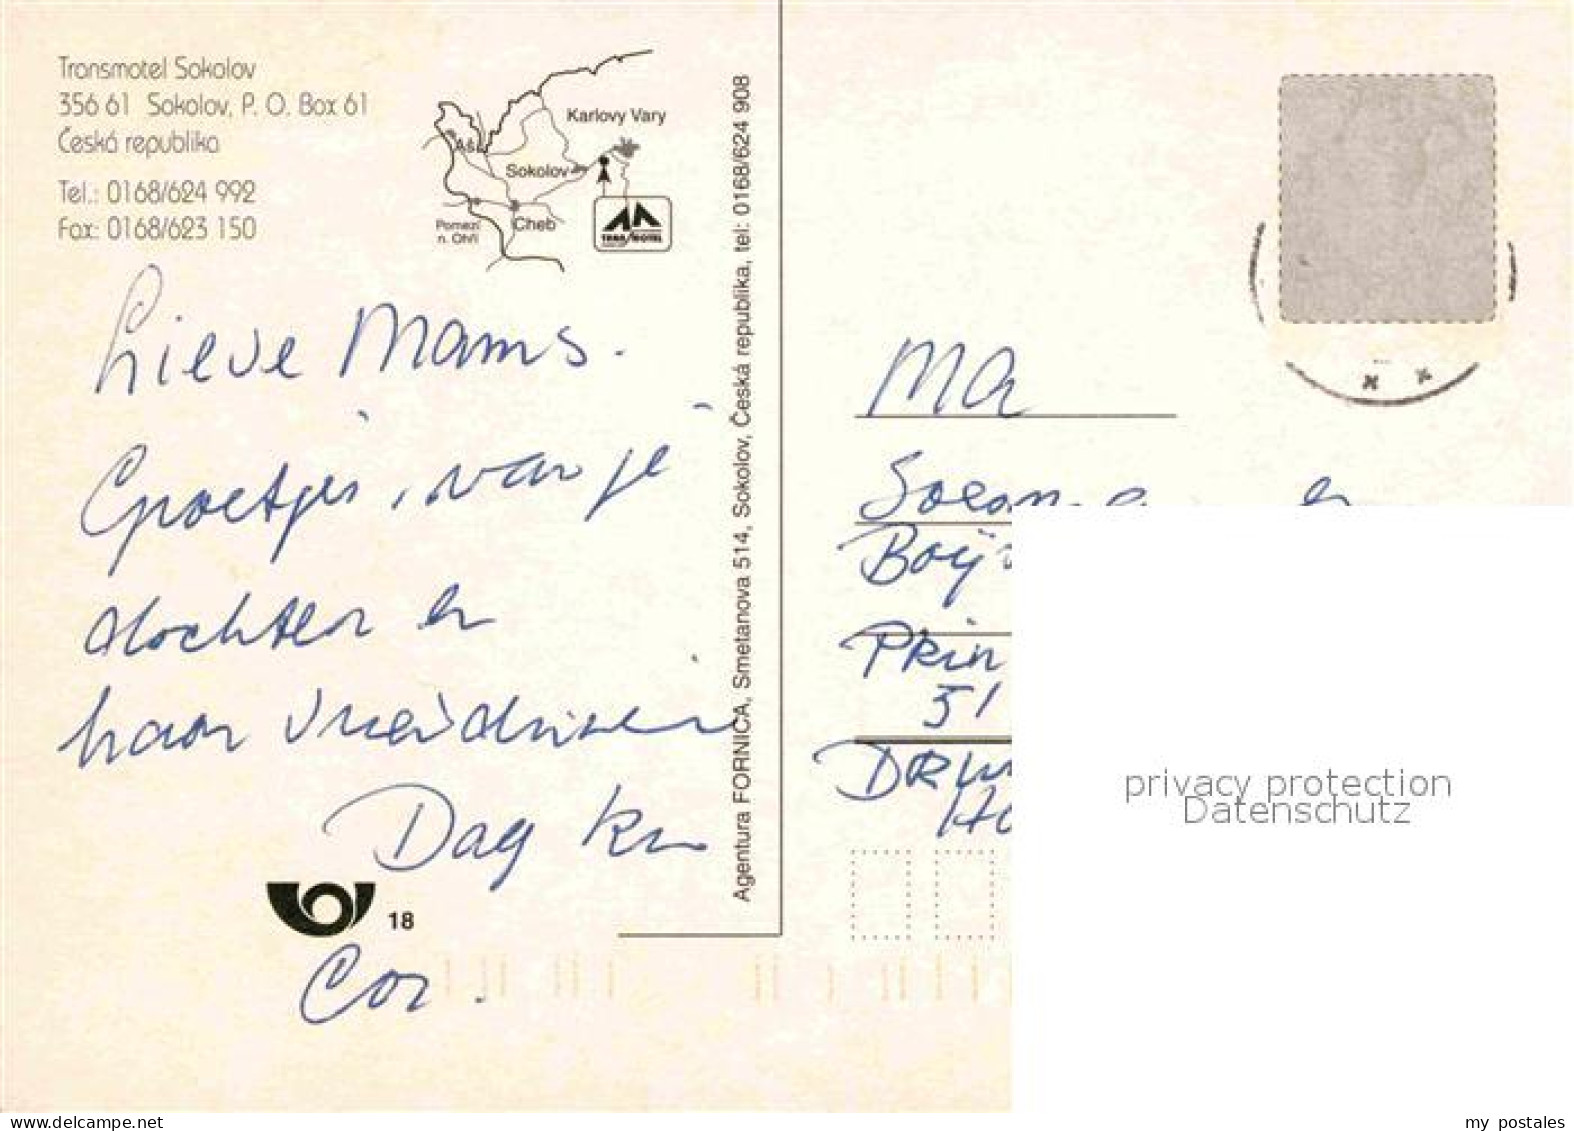 Transmotel Sokolov
356 61 Sokolov, P. O. Box 61
Česká republika
Tel.: 0168/624 992
Fax: 0168/623 150
Karlovy Vary
Aš
Sokolov
Cheb
Pomezí
n. Ohří
Lieve Mams.
Groetjes, van je
dochter en
haar vriendinnen
Dag
18
Cor.
Agentura FORNICA, Smetanova 514, Sokolov, Česká republika, tel: 0168/624 908
MA
PRin
51
DRu
privacy protection
Datenschutz
my postales